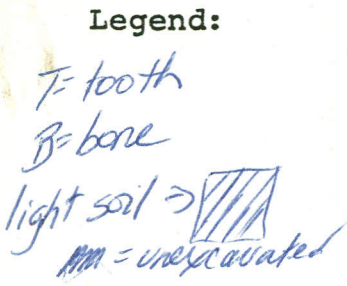 Legend:
T= tooth
B= bone
light soil ⇒
= unexcavated